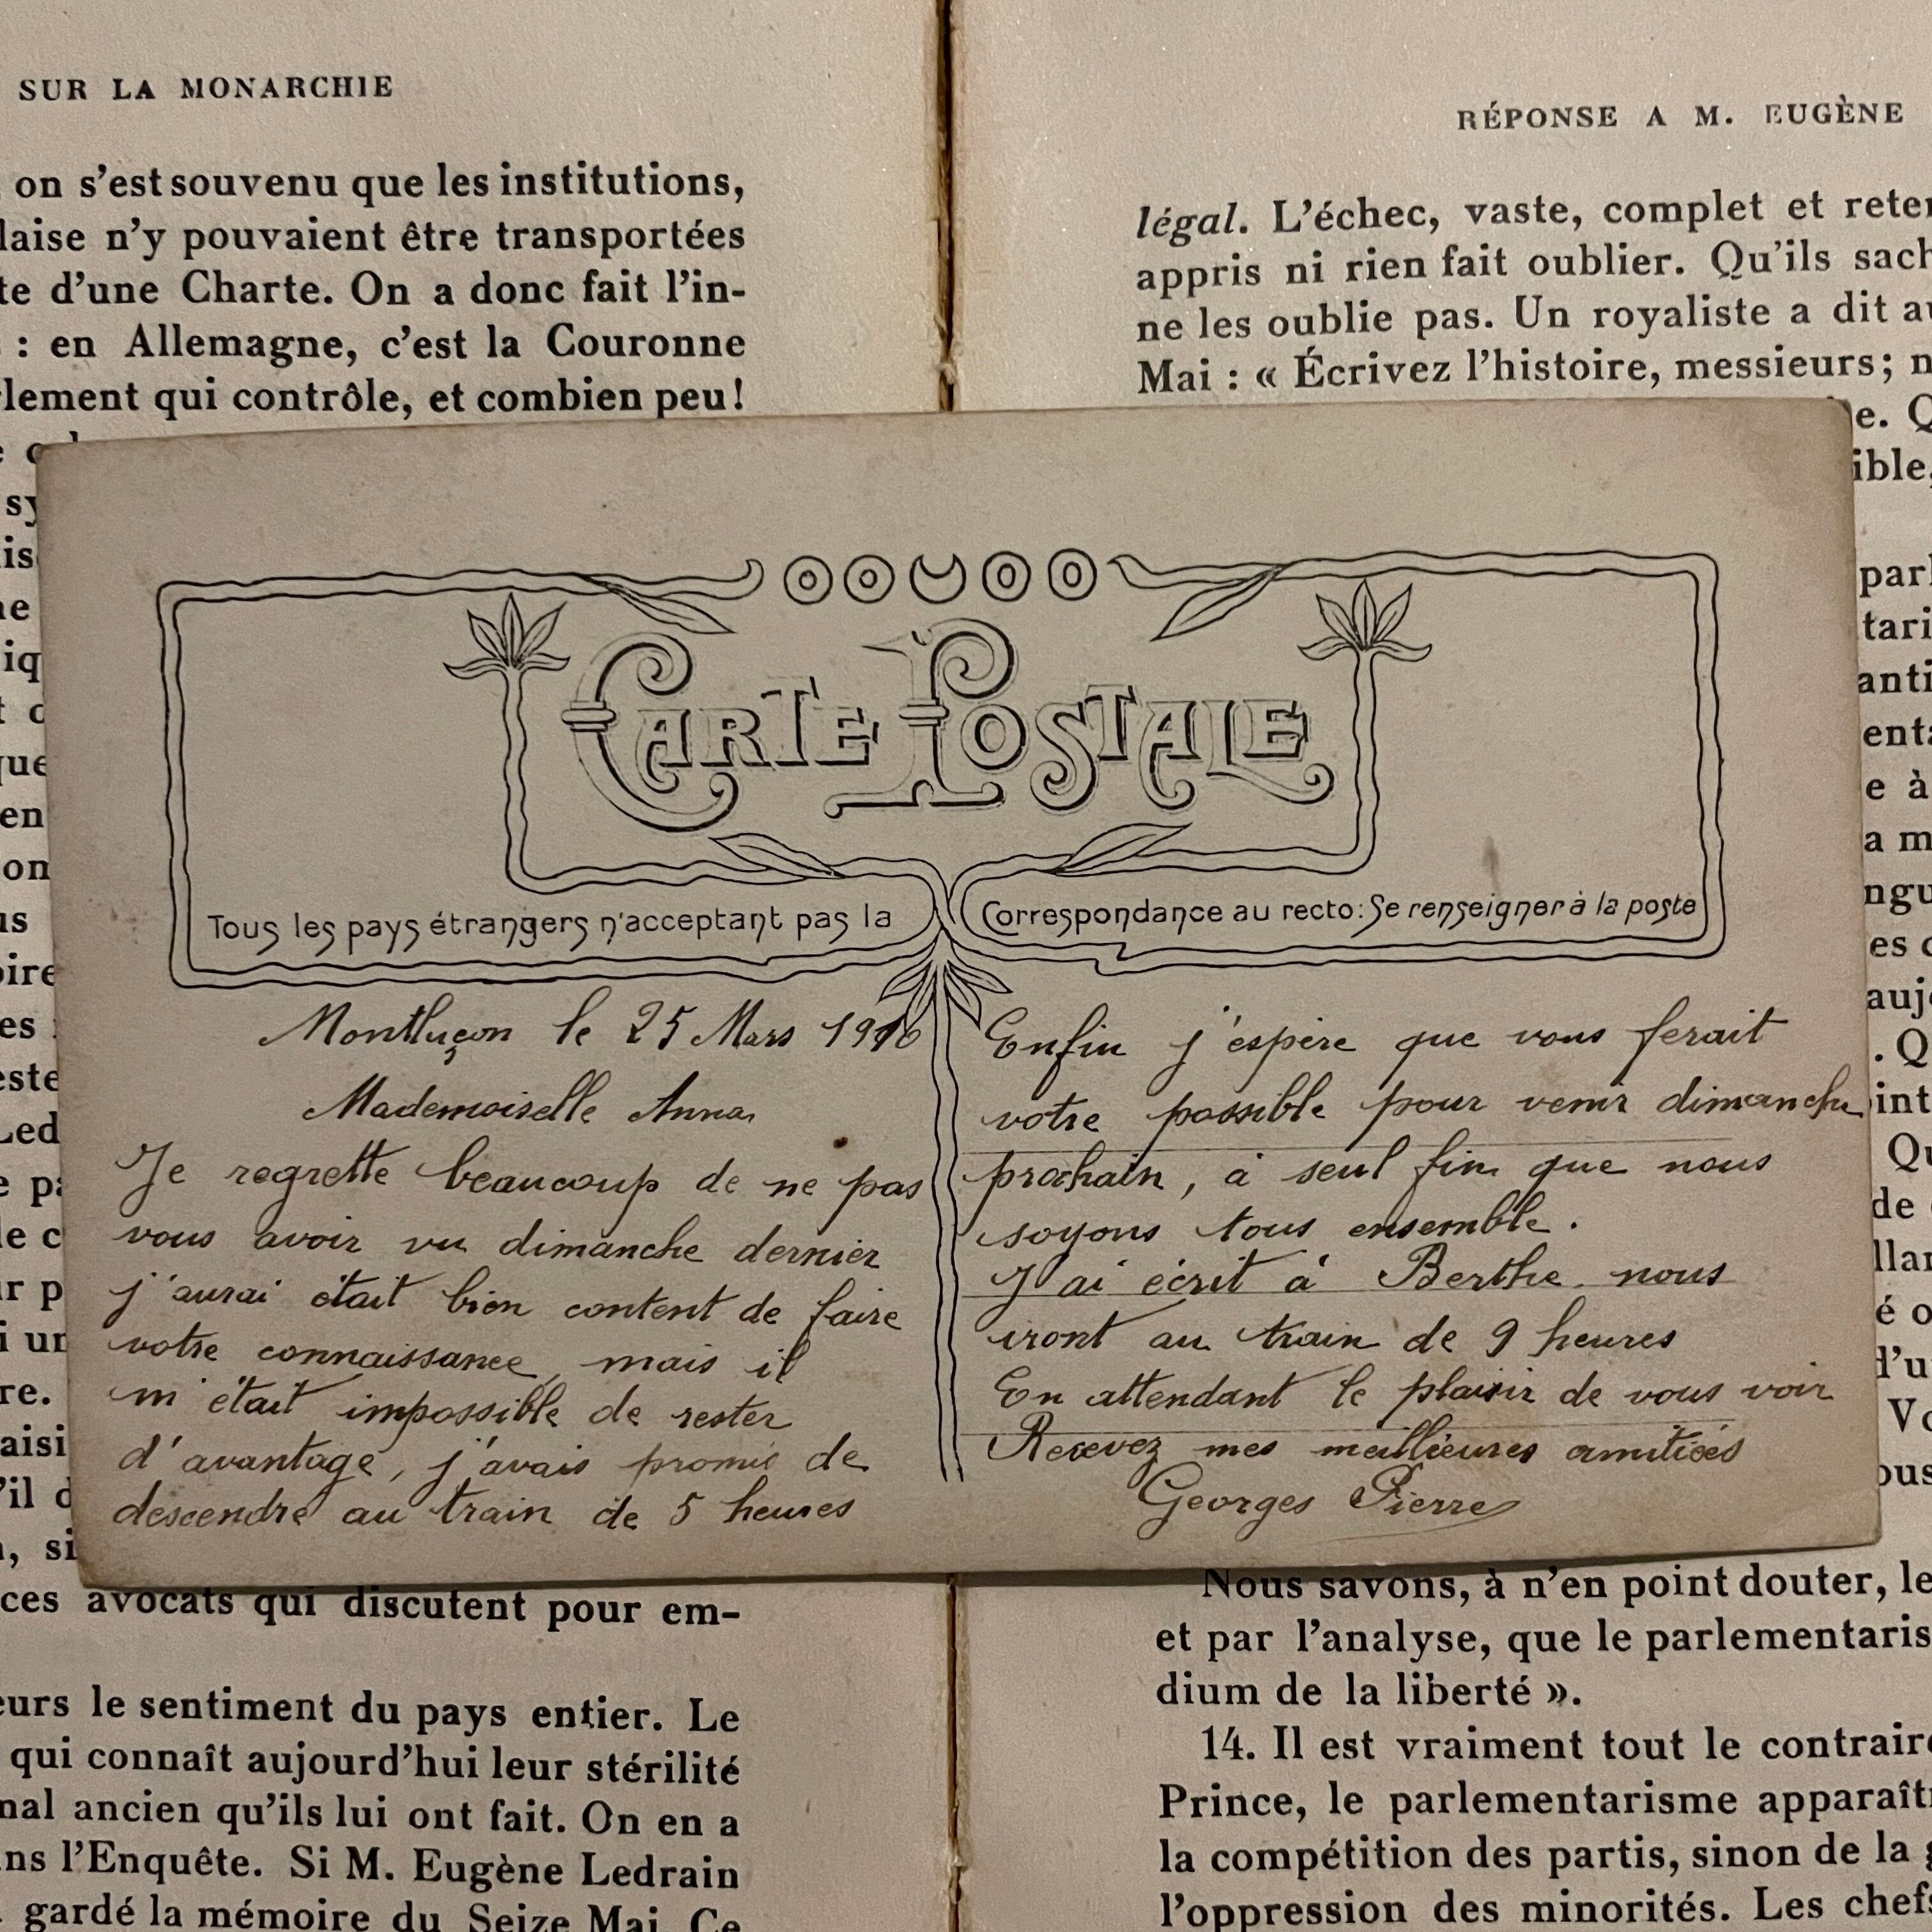 SUR LA MONARCHIE
on s'est souvenu que les institutions,
laise n'y pouvaient être transportées
te d'une Charte. On a donc fait l'in-
: en Allemagne, c'est la Couronne
rlement qui contrôle, et combien peu!
sy
is
ne
iq
t
que
en
on
us
oire
es
este
Led
e pa
le c
r p
i un
re.
aisi
'il d
, si
ces avocats qui discutent pour em-
eurs le sentiment du pays entier. Le
qui connaît aujourd'hui leur stérilité
nal ancien qu'ils lui ont fait. On en a
ns l'Enquête. Si M. Eugène Ledrain
gardé la mémoire du Seize Mai. Ce
RÉPONSE A M. EUGÈNE
légal. L'échec, vaste, complet et reten
appris ni rien fait oublier. Qu'ils sach
ne les oublie pas. Un royaliste a dit au
Mai : « Écrivez l'histoire, messieurs; n
e. Q
ible,
parl
tari
anti
enta
e à
a m
ngu
es c
aujo
. Q
int
Qu
de
llan
é o
d'u
Vo
ous
Nous savons, à n'en point douter, le
et par l'analyse, que le parlementaris
dium de la liberté ».
14. Il est vraiment tout le contraire
Prince, le parlementarisme apparaîtr
la compétition des partis, sinon de la g
l'oppression des minorités. Les chefs
CARTE POSTALE
Tous les pays étrangers n'acceptant pas la
Correspondance au recto: Se renseigner à la poste
Montluçon le 25 Mars 1910
Mademoiselle Anna
Je regrette beaucoup de ne pas
vous avoir vu dimanche dernier
j'aurai était bien content de faire
votre connaissance, mais il
m'était impossible de rester
d'avantage, j'avais promis de
descendre au train de 5 heures
Enfin j'espère que vous ferait
votre possible pour venir dimanche
prochain, à seul fin que nous
soyons tous ensemble.
J'ai écrit à Berthe nous
iront au train de 9 heures
En attendant le plaisir de vous voir
Recevez mes meillieures amitiées
Georges Pierre